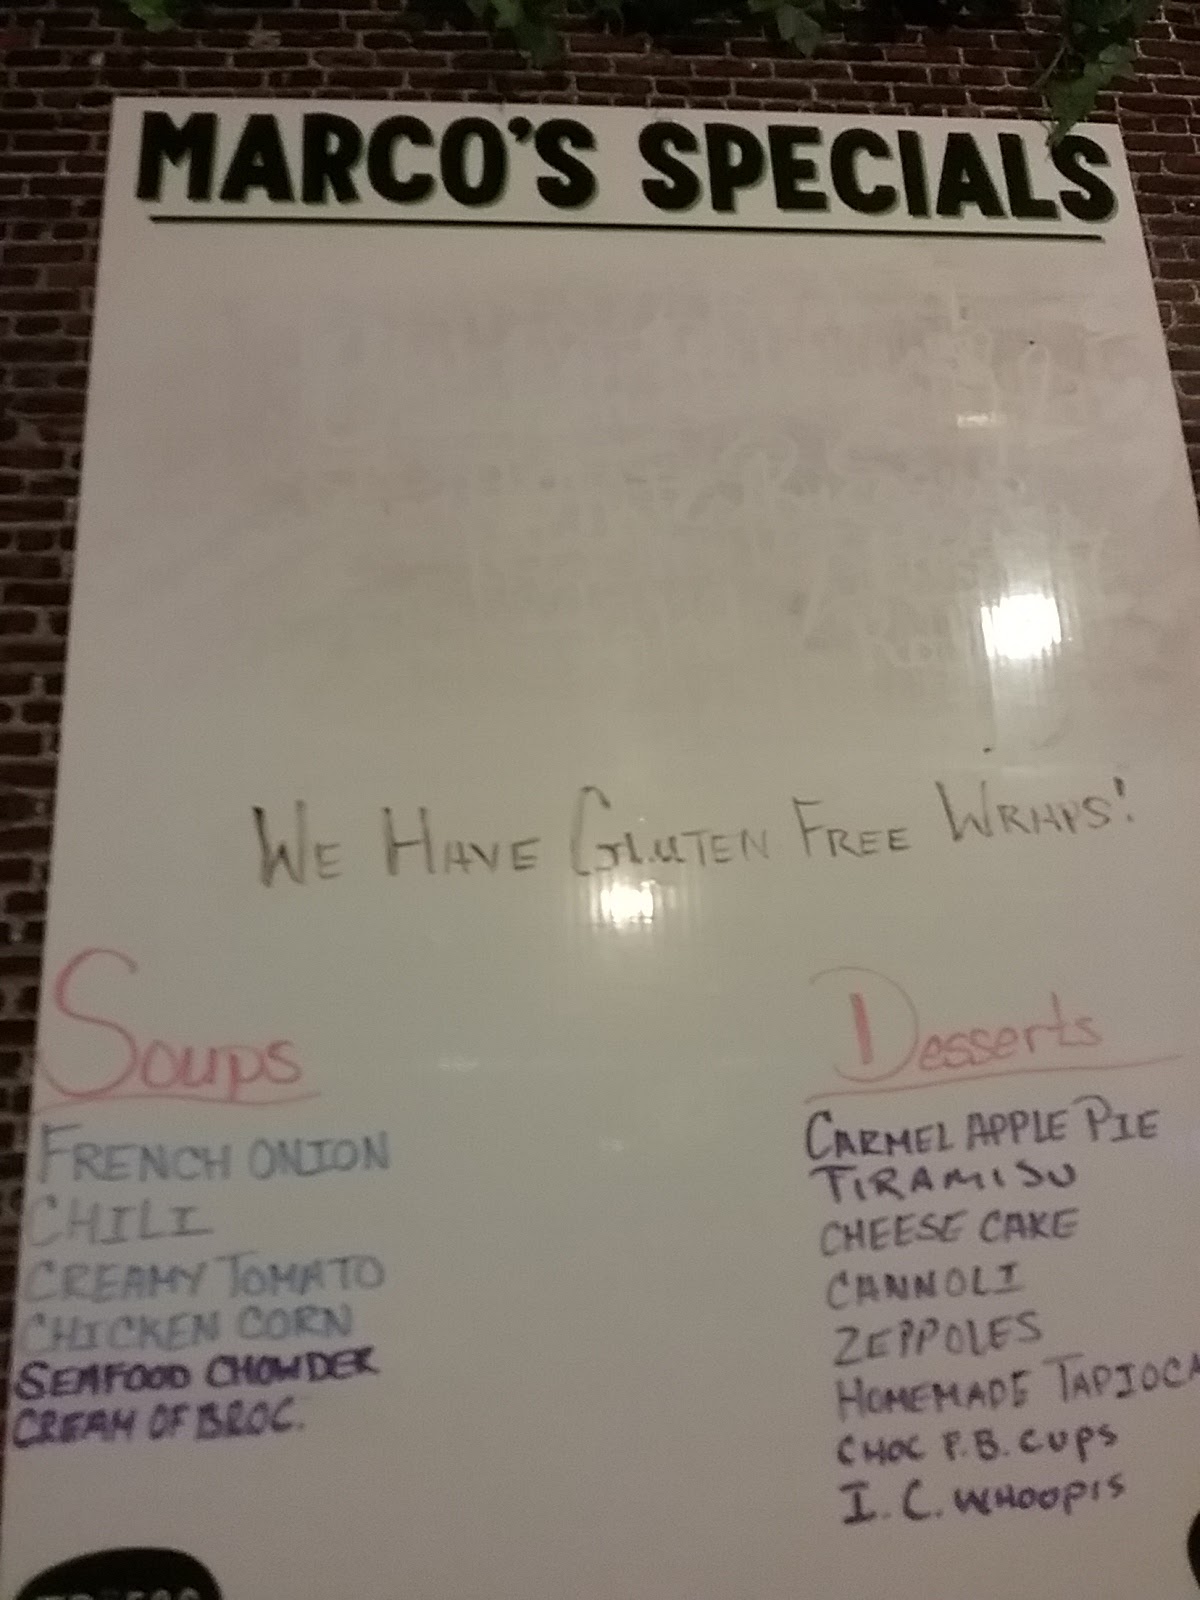 MARCO'S SPECIALS
WE HAVE GLUTEN FREE WRAPS!
Soups
FRENCH ONION
CHILI
CREAMY TOMATO
CHICKEN CORN
SEAFOOD CHOWDER
CREAM OF BROC.
Desserts
CARMEL APPLE PIE
TIRAMISU
CHEESE CAKE
CANNOLI
ZEPPOLES
HOMEMADE TAPIOCA
CHOC P.B. CUPS
I.C. WHOOPIS